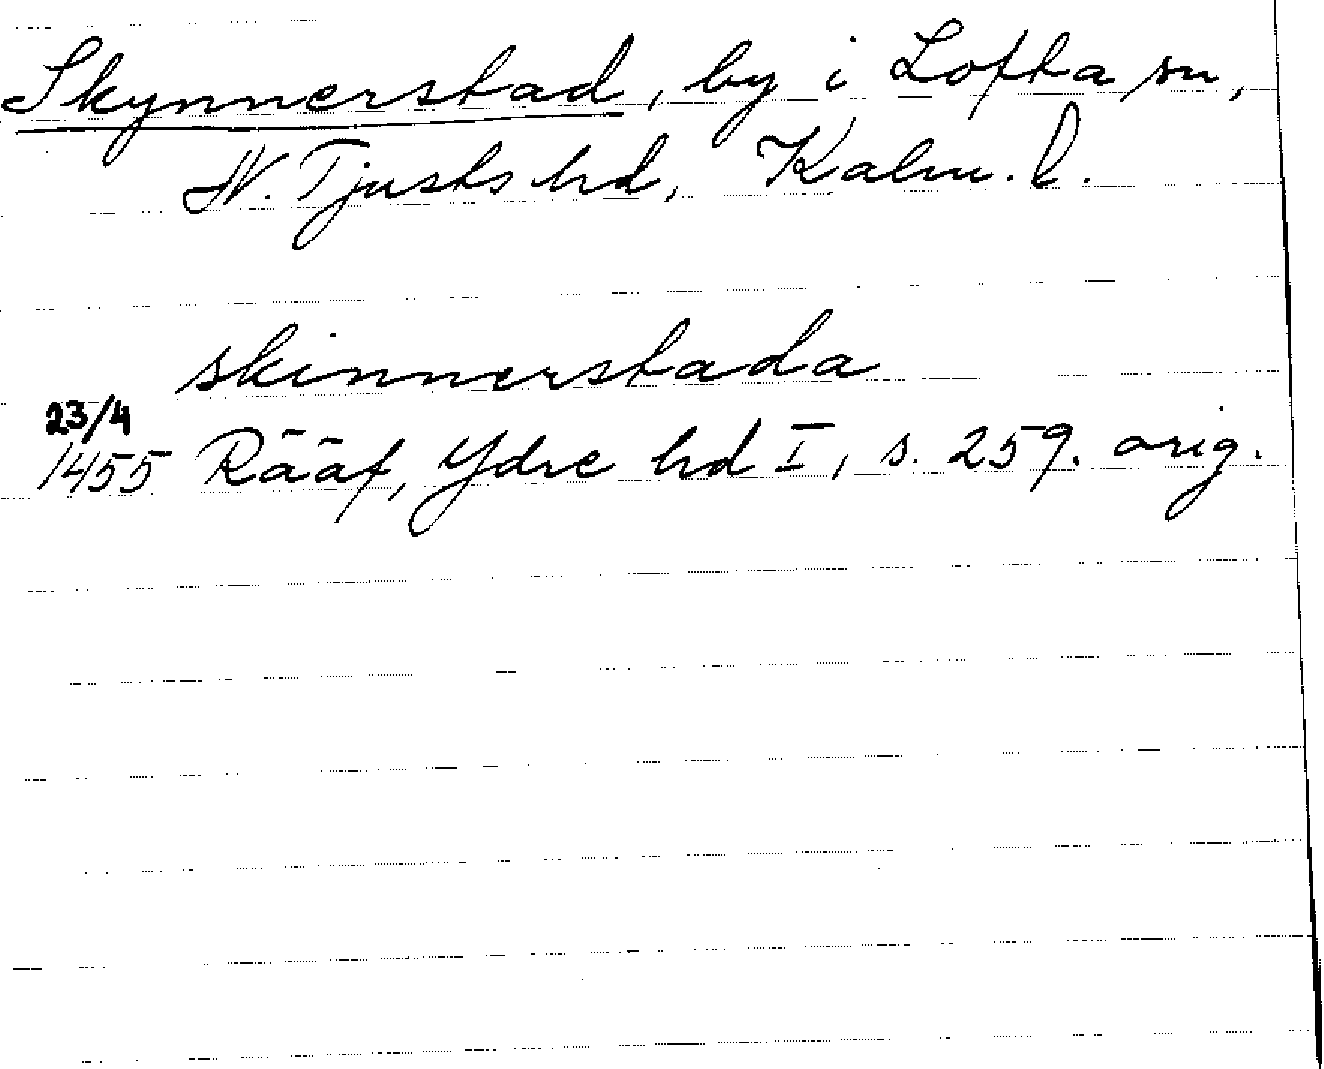 Skynnerstad, by i Lofta sn,
N. Tjusts hd, Kalm. l.
skinnerstada
23/4
1455 Rääf, Ydre hd I, s. 259. orig.